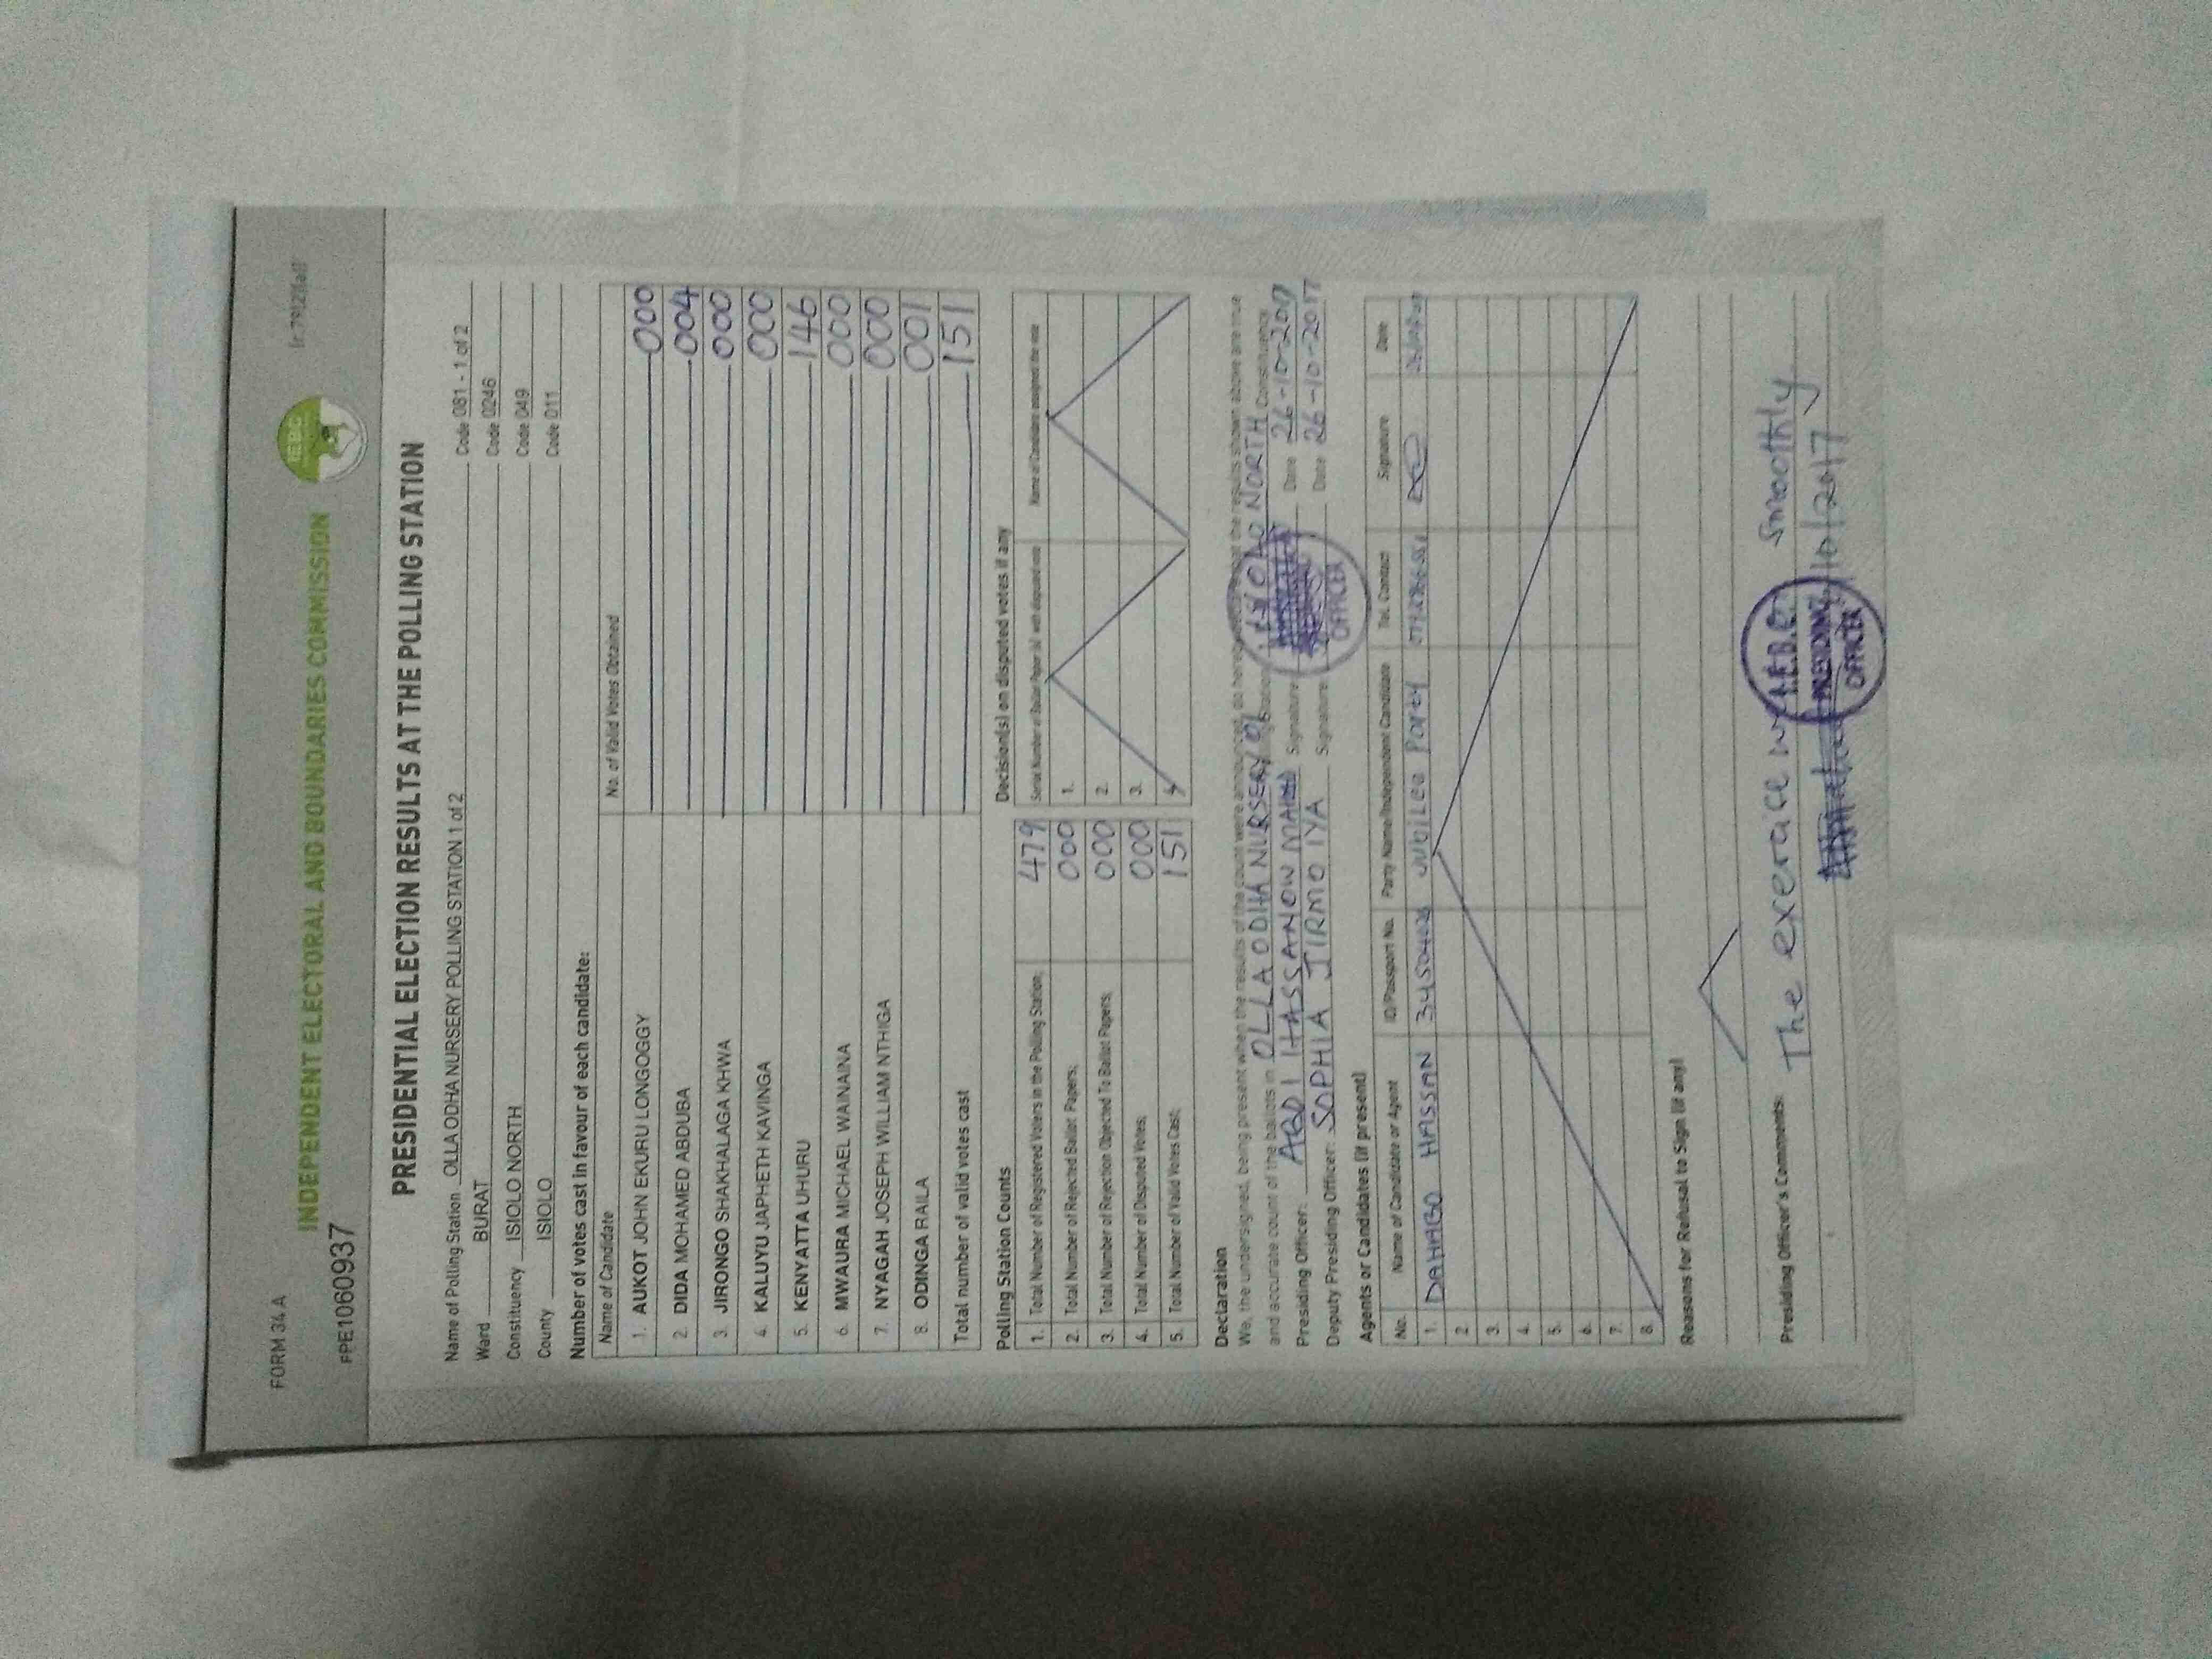 FORM 34 A
INDEPENDENT ELECTORAL AND BOUNDARIES COMMISSION
IEBC
FPE1060937
PRESIDENTIAL ELECTION RESULTS AT THE POLLING STATION
Name of Polling Station OLLA ODHA NURSERY POLLING STATION 1 of 2 Code 081 - 1 of 2
Ward BURAT Code 0246
Constituency ISIOLO NORTH Code 049
County ISIOLO Code 011
Number of votes cast in favour of each candidate:
Name of Candidate No. of Valid Votes Obtained
1. AUKOT JOHN EKURU LONGOGGY 000
2. DIDA MOHAMED ABDUBA 004
3. JIRONGO SHAKHALAGA KHWA 000
4. KALUYU JAPHETH KAVINGA 000
5. KENYATTA UHURU 146
6. MWAURA MICHAEL WAINAINA 000
7. NYAGAH JOSEPH WILLIAM NTHIGA 000
8. ODINGA RAILA 001
Total number of valid votes cast 151
Polling Station Counts Decision(s) on disputed votes if any
1. Total Number of Registered Voters in the Polling Station; 479
2. Total Number of Rejected Ballot Papers; 000 1.
3. Total Number of Rejection Objected To Ballot Papers; 000 2.
4. Total Number of Disputed Votes; 000 3.
5. Total Number of Valid Votes Cast; 151
Declaration
We, the undersigned, being present when the results of the count were announced, do hereby the results shown above are true
and accurate count of the ballots in OLLA ODHA NURSERY ISIOLO NORTH Constituency
Presiding Officer: ABDI HASSANOW Signature Date 26-10-2017
Deputy Presiding Officer: SOPHIA JIRMO IYA Signature Date 26-10-2017
OFFICER
Agents or Candidates (if present)
No. Name of Candidate or Agent ID/Passport No. Party Name/Independent Candidate Tel. Contact Signature Date
1. DAHABO HASSAN Jubilee Party
2.
3.
4.
5.
6.
7.
8.
Reasons for Refusal to Sign (if any)
Presiding Officer's Comments: The exeracice smoothly
I.E.B.C. PRESIDING OFFICER
10/2017